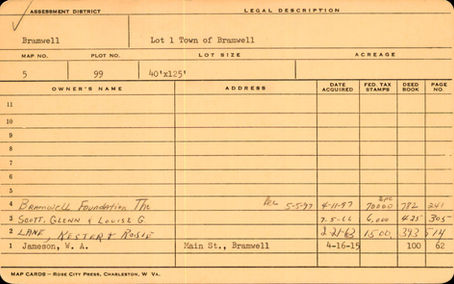 ASSESSMENT DISTRICT LEGAL DESCRIPTION
Bramwell Lot 1 Town of Bramwell
MAP NO. PLOT NO. LOT SIZE ACREAGE
5 99 40'x125'
OWNER'S NAME ADDRESS DATE ACQUIRED FED. TAX STAMPS DEED BOOK PAGE NO.
11
10
9
8
7
6
5
4 Bramwell Foundation The Rec 5-5-97 4-11-97 70000 782 241
3 Scott, Glenn & Louise G. 7-5-66 6,000 425 305
2 Lane, Kester & Rosie 2-21-63 1500, 393 514
1 Jameson, W. A. Main St., Bramwell 4-16-15 100 62
MAP CARDS — ROSE CITY PRESS, CHARLESTON, W VA.